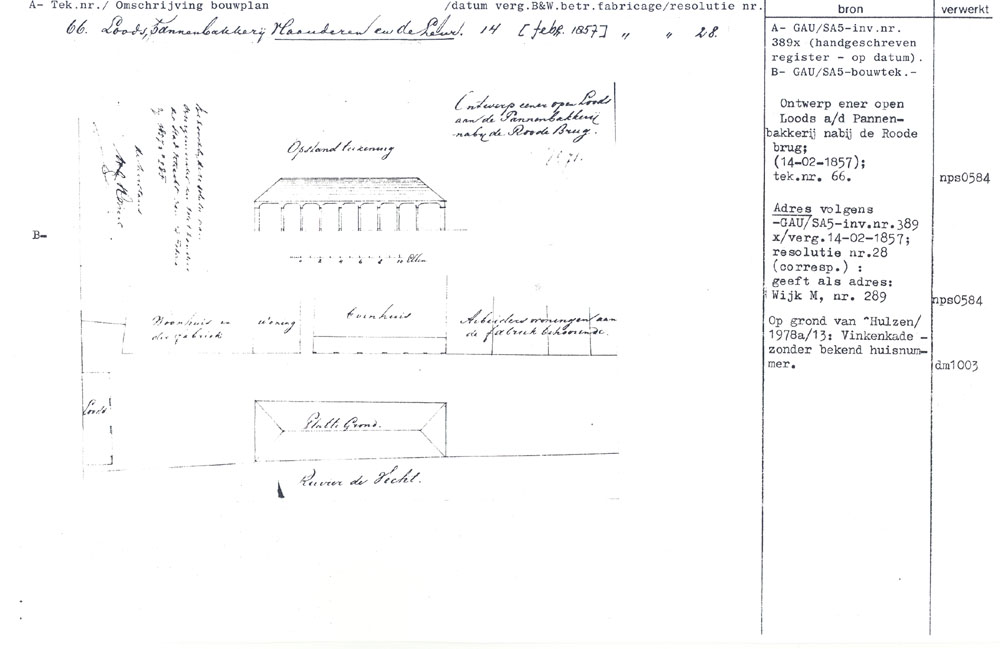 A- Tek.nr./ Omschrijving bouwplan /datum verg.B&W.betr.fabricage/resolutie nr.
bron
verwerkt
66. Loods, Pannenbakkerij en de 14 [febr. 1857] „ „ 28.
A- GAU/SA5-inv.nr.
389x (handgeschreven
register - op datum).
B- GAU/SA5-bouwtek.-
Ontwerp ener open
Loods a/d Pannen-
bakkerij nabij de Roode
brug;
(14-02-1857);
tek.nr. 66.
nps0584
Adres volgens
-GAU/SA5-inv.nr.389
x/verg.14-02-1857;
resolutie nr.28
(corresp.) :
geeft als adres:
Wijk M, nr. 289
nps0584
Op grond van ^Hulzen/
1978a/13: Vinkenkade -
zonder bekend huisnum-
mer.
dm1003
B-
Ontwerp eener open Loods
aan de Pannenbakkerij
nabij de Roode Brug.
Opstand teekening
2 4 6 8 10 Ellen
Woonhuis en
fabriek
Woning
Ovenhuis
Arbeiderswoningen aan
de fabriek behoorende.
Loods
Platte Grond.
Rivier de Vecht.